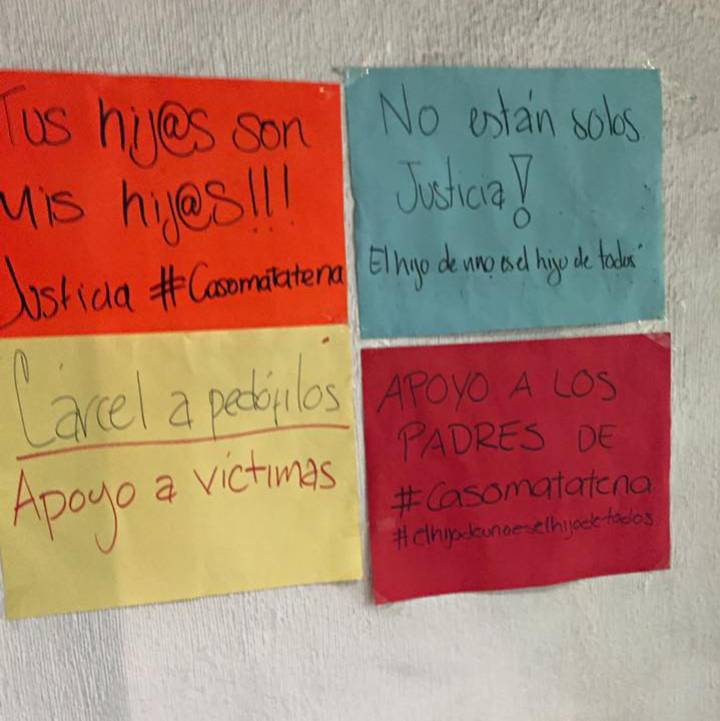 Tus hij@s son
Mis hij@s!!!
Justicia #Casomatatena
No están solos
Justicia!
El hijo de uno es el hijo de todos"
Cárcel a pedófilos
Apoyo a víctimas
APOYO A LOS
PADRES DE
#Casomatatena
#elhijodeunoeselhijodetodos